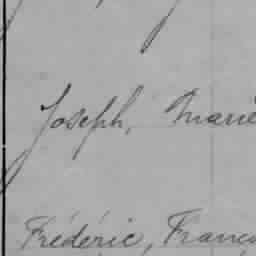 Joseph, Marie
Frédéric, Franç